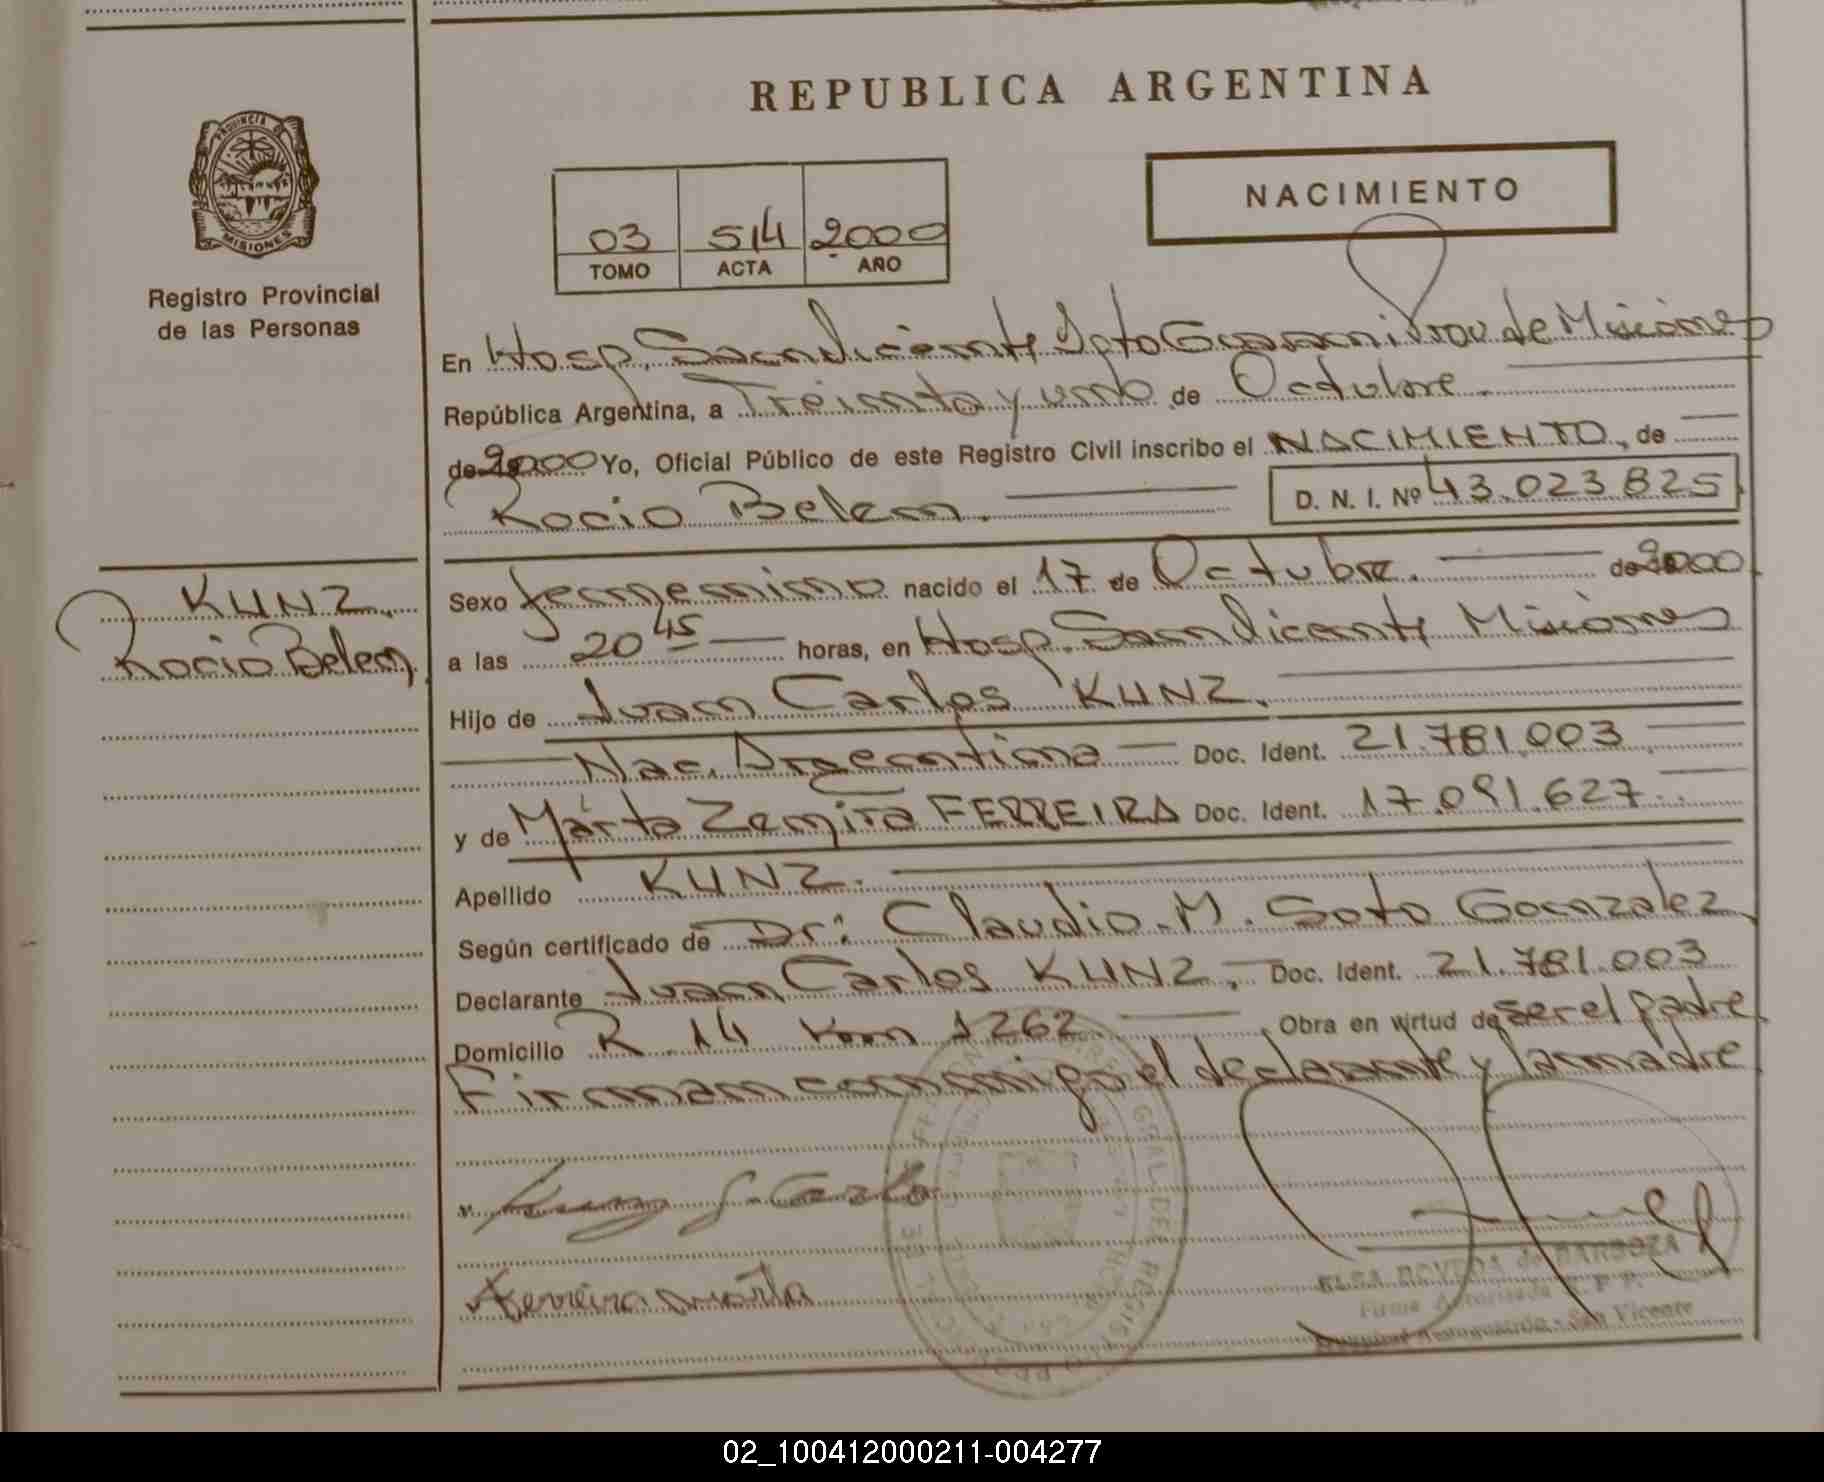 REPUBLICA ARGENTINA
PROVINCIA DE
MISIONES
Registro Provincial
de las Personas
NACIMIENTO
03 514 2000
TOMO ACTA AÑO
En Hosp. San Vicente Dpto Guarani Prov. de Misiones
República Argentina, a Treinta y uno de Octubre.
de 2000 Yo, Oficial Público de este Registro Civil inscribo el NACIMIENTO, de
Rocio Belem. D. N. I. Nº 43.023.825
KUNZ.
Rocio Belem.
Sexo femenino nacido el 17 de Octubre. de 2000
a las 20 45 horas, en Hosp. San Vicente Misiones
Hijo de Juan Carlos KUNZ.
Nac. Argentina Doc. Ident. 21.781.003
y de Marta Zemira FERREIRA Doc. Ident. 17.091.627
Apellido KUNZ.
Según certificado de Dr: Claudio. M. Soto Gonzalez
Declarante Juan Carlos KUNZ, Doc. Ident. 21.781.003
Domicilio R. 14 Km 1262. Obra en virtud de ser el padre
Firman conmigo el declarante y la madre
Kunz J. Carlo
Ferreira Marta
ELSA de BARBOZA
Firma Autorizada R. P. P.
Hospital - San Vicente
02_100412000211-004277